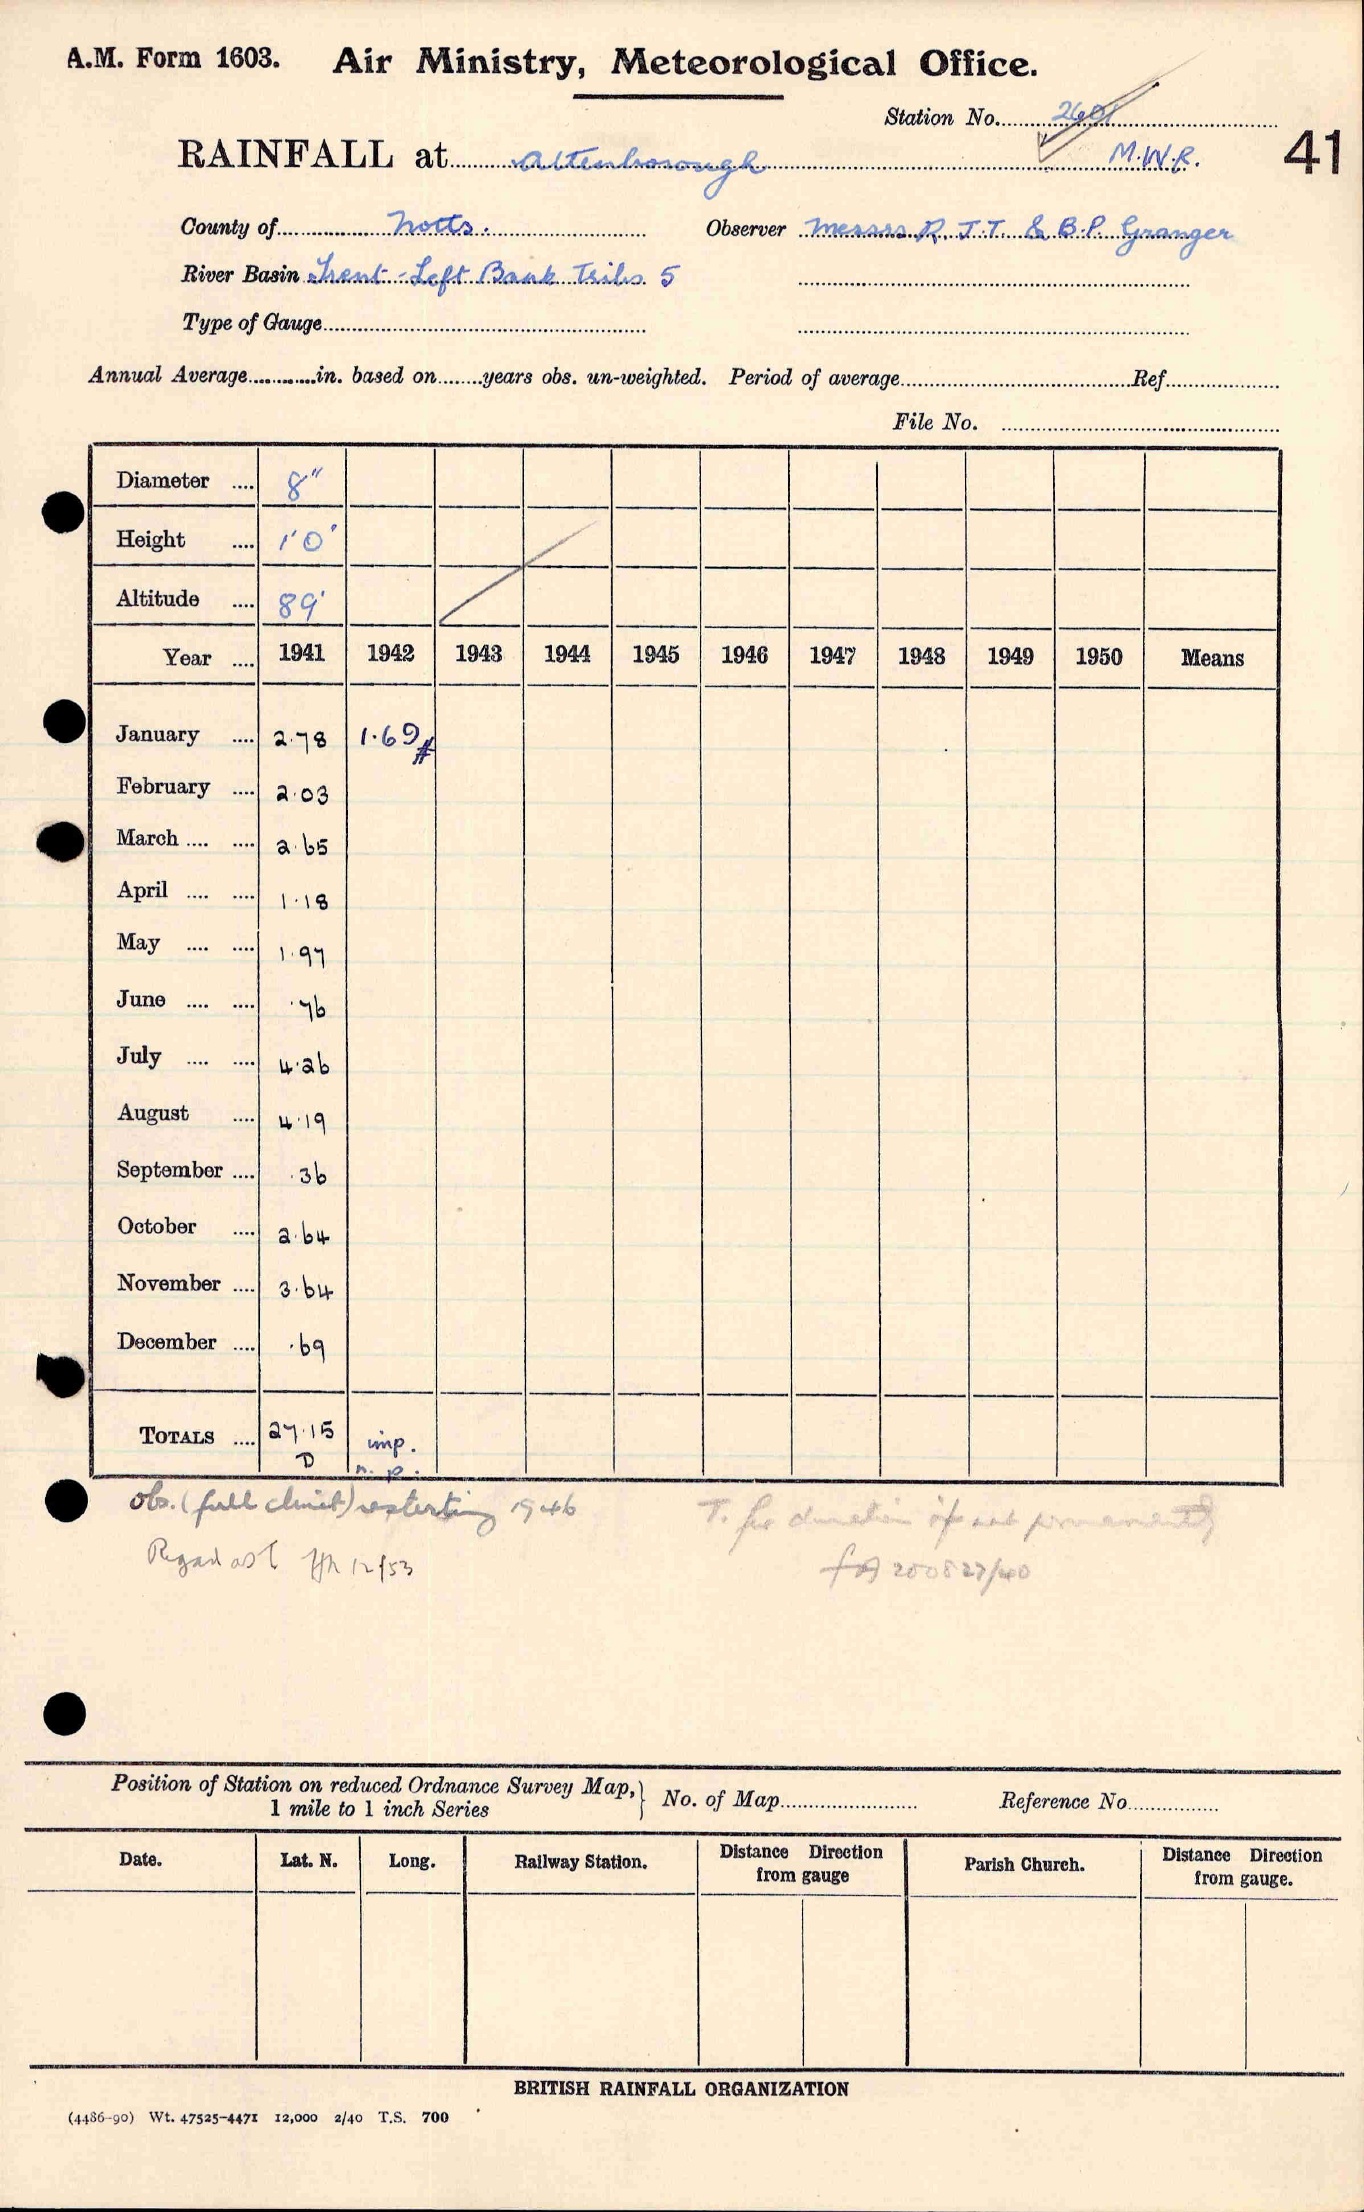 A.M. Form 1603. Air Ministry, Meteorological Office.
Station No. 2601
RAINFALL at Attenborough M.W.R. 41
County of Notts. Observer Messrs R. J.T. & B.P. Granger
River Basin Trent - Left Bank Tribs 5
Type of Gauge
Annual Average in. based on years obs. un-weighted. Period of average Ref.
File No.
Diameter .... 8"
Height .... 1' 0"
Altitude .... 89'
Year .... 1941 1942 1943 1944 1945 1946 1947 1948 1949 1950 Means
January .... 2.78 1.69 #
February .... 2.03
March .... .... 2.65
April .... .... 1.18
May .... .... 1.97
June .... .... .76
July .... .... 4.26
August .... 4.19
September .... .36
October .... 2.64
November .... 3.64
December .... .69
TOTALS .... 27.15 imp.
D n. p.
obs. (full climat) restarting 1946 T. for duration if not permanently
Regard as T 12/53 200827/40
Position of Station on reduced Ordnance Survey Map,} No. of Map Reference No.
1 mile to 1 inch Series
Date. Lat. N. Long. Railway Station. Distance Direction from gauge Parish Church. Distance Direction from gauge.
BRITISH RAINFALL ORGANIZATION
(4486-90) Wt. 47525-4471 12,000 2/40 T.S. 700